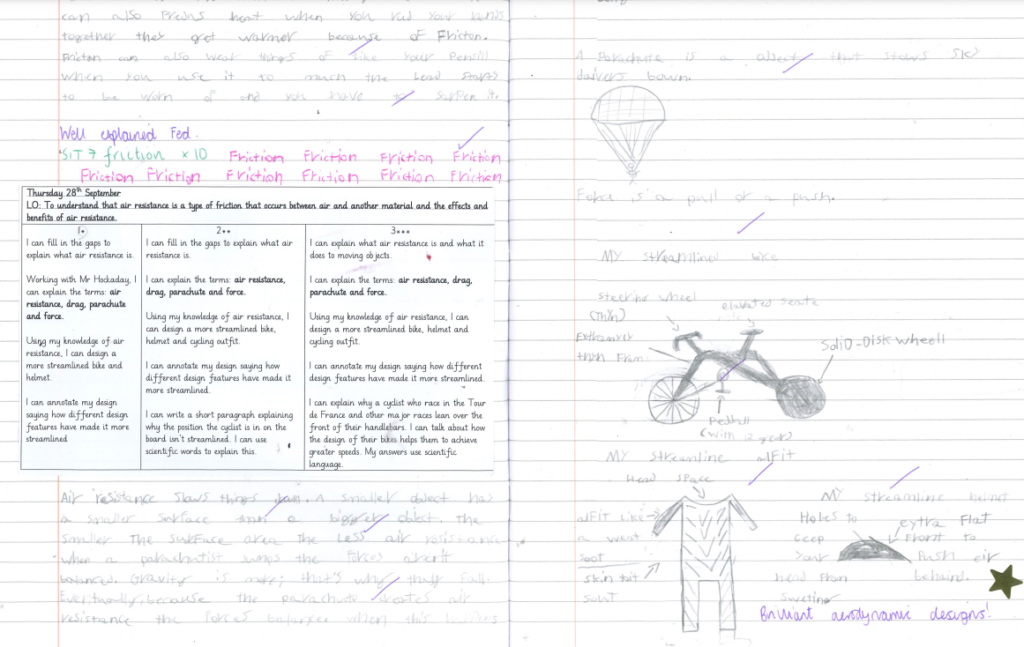 can also means heat when you rub your hands
together they get warmer because of Friction.
Friction can also wear things of like your Pensill
When you use it to much the lead starts
to be worn of and you have to sarpen it.
Well explained Fed.
SIT 7 friction x 10 Friction Friction Friction Friction
Friction Friction Friction Friction Friction Friction
Thursday 28th September
LO: To understand that air resistance is a type of friction that occurs between air and another material and the effects and
benefits of air resistance.
1•
I can fill in the gaps to
explain what air resistance is.
Working with Mr Hockaday, I
can explain the terms: air
resistance, drag, parachute
and force.
Using my knowledge of air
resistance, I can design a
more streamlined bike and
helmet.
I can annotate my design
saying how different design
features have made it more
streamlined
2••
I can fill in the gaps to explain what air
resistance is.
I can explain the terms: air resistance,
drag, parachute and force.
Using my knowledge of air resistance, I
can design a more streamlined bike,
helmet and cycling outfit.
I can annotate my design saying how
different design features have made it
more streamlined.
I can write a short paragraph explaining
why the position the cyclist is in on the
board isn't streamlined. I can use
scientific words to explain this.
3•••
I can explain what air resistance is and what it
does to moving objects.
I can explain the terms: air resistance, drag,
parachute and force.
Using my knowledge of air resistance, I can
design a more streamlined bike, helmet and
cycling outfit.
I can annotate my design saying how different
design features have made it more streamlined.
I can explain why a cyclist who race in the Tour
de France and other major races lean over the
front of their handlebars. I can talk about how
the design of their bikes helps them to achieve
greater speeds. My answers use scientific
language.
Air resistance slows things down. A smaller object has
a smaller surface than a bigger object. The
smaller the surface area the Less air resistance
when a parachutist jumps the forces aren't
balanced. Gravity is that's why they fall.
Eventually, because the parachute creates air
resistance the forces balance when this happens
A Parachute is a object that slows sky
daivers down.
Force is a pull or a push.
MY streamlined bike
steering wheel
(Thin)
elevated seate
Extreamly
thin Fram
Solid-Disk wheell
Peddall
(with 12 gears)
MY streamline outFit
Head space
outFit Like
a weat
soot
skin tuit
suit
MY streamline helmet
Holes to
ceep
your
head From
sweting
extra Flat
Front to
Push air
behaind.
Brilliant aerodynamic designs!